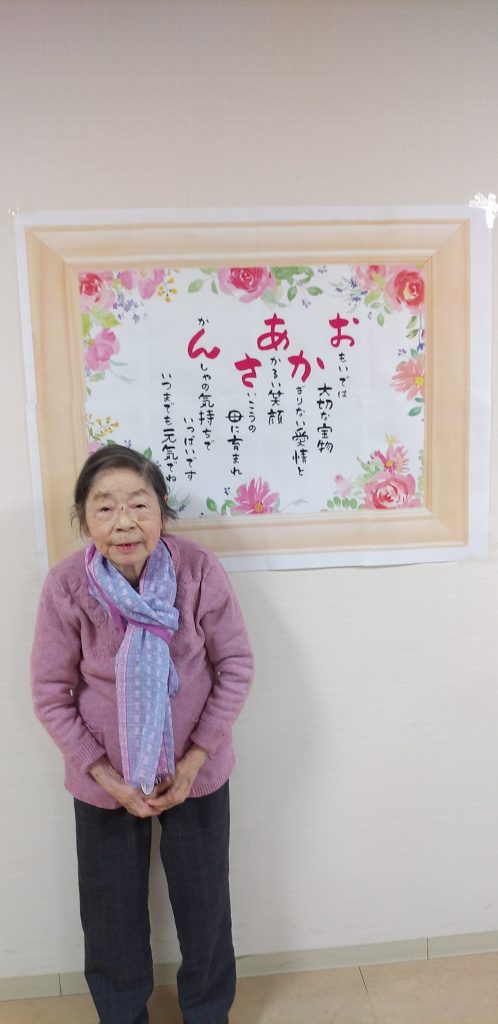 おもいでは
大切な宝物
かぎりない愛情と
あかるい笑顔
さいこうの
母に育まれ
かんしゃの気持ちで
いっぱいです
いつまでも元気でね